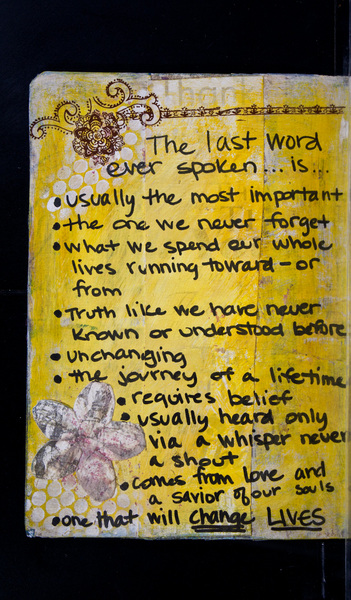 The last word
ever spoken... is...
• usually the most important
• the one we never forget
• what we spend our whole
lives running toward - or
from
• Truth like we have never
known or understood before
• unchanging
• the journey of a lifetime
• requires belief
• usually heard only
via a whisper never
a shout
• comes from love and
a savior of our souls
• one that will change LIVES